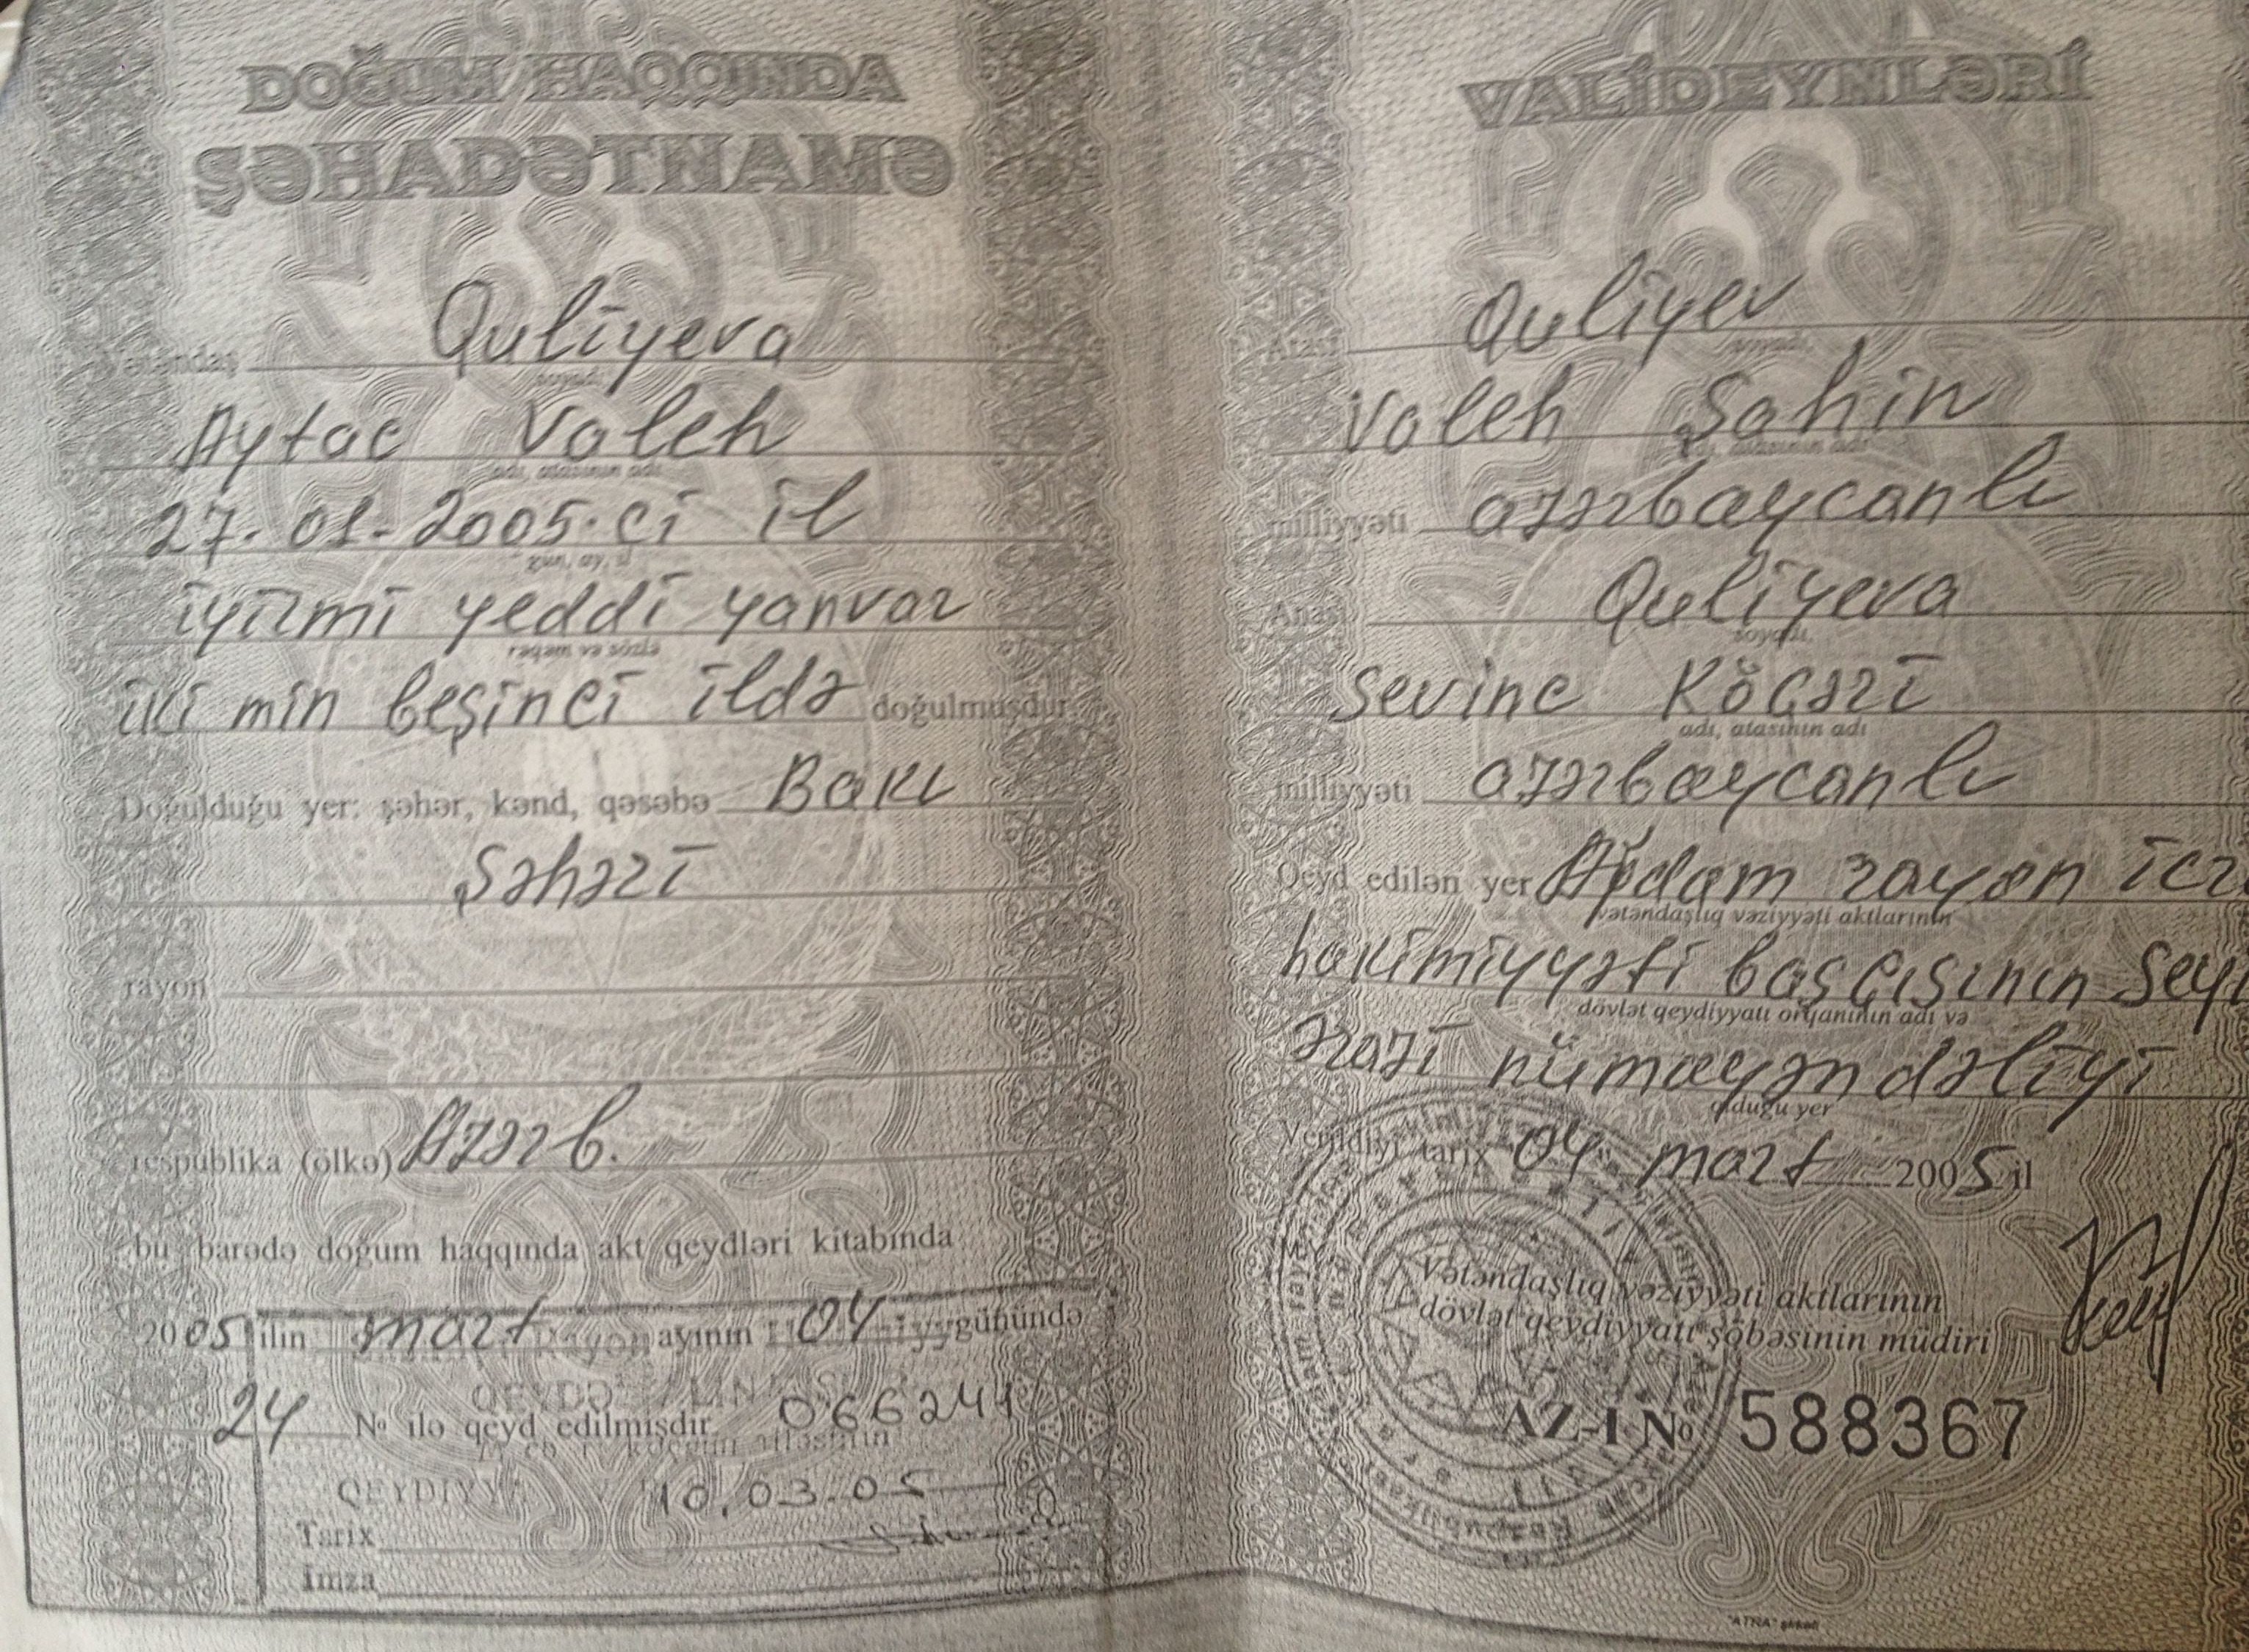 DOĞUM HAQQINDA
ŞƏHADƏTNAMƏ
Vətəndaş Quliyeva
soyadı
Aytac Valeh
adı, atasının adı
27.01.2005.ci il
gün, ay, il
iyirmi yeddi yanvar
rəqəm və sözlə
iki min beşinci ildə doğulmuşdur
Doğulduğu yer: şəhər, kənd, qəsəbə Bakı
Şəhəri
rayon
respublika (ölkə) Azərb.
bu barədə doğum haqqında akt qeydləri kitabında
2005 ilin mart ayının 04 günündə
24 № ilə qeyd edilmişdir 066241
QEYDİYY
10.03.05
Tarix
İmza
VALİDEYNLƏRİ
Atası Quliyev
soyadı
Valeh Şahin
adı, atasının adı
milliyyəti azərbaycanlı
Anası Quliyeva
soyadı
Sevinc Köçəri
adı, atasının adı
milliyyəti azərbaycanlı
Qeyd edilən yer Ağdam rayon icr
vətəndaşlıq vəziyyəti aktlarının
hakimiyyəti başçışının Seyi
dövlət qeydiyyatı orqanının adı və
ərazi nümayəndəliyi
olduğu yer
Verildiyi tarix 04 mart 2005 il
Vətəndaşlıq vəziyyəti aktlarının
dövlət qeydiyyatı şöbəsinin müdiri
AZ-I № 588367